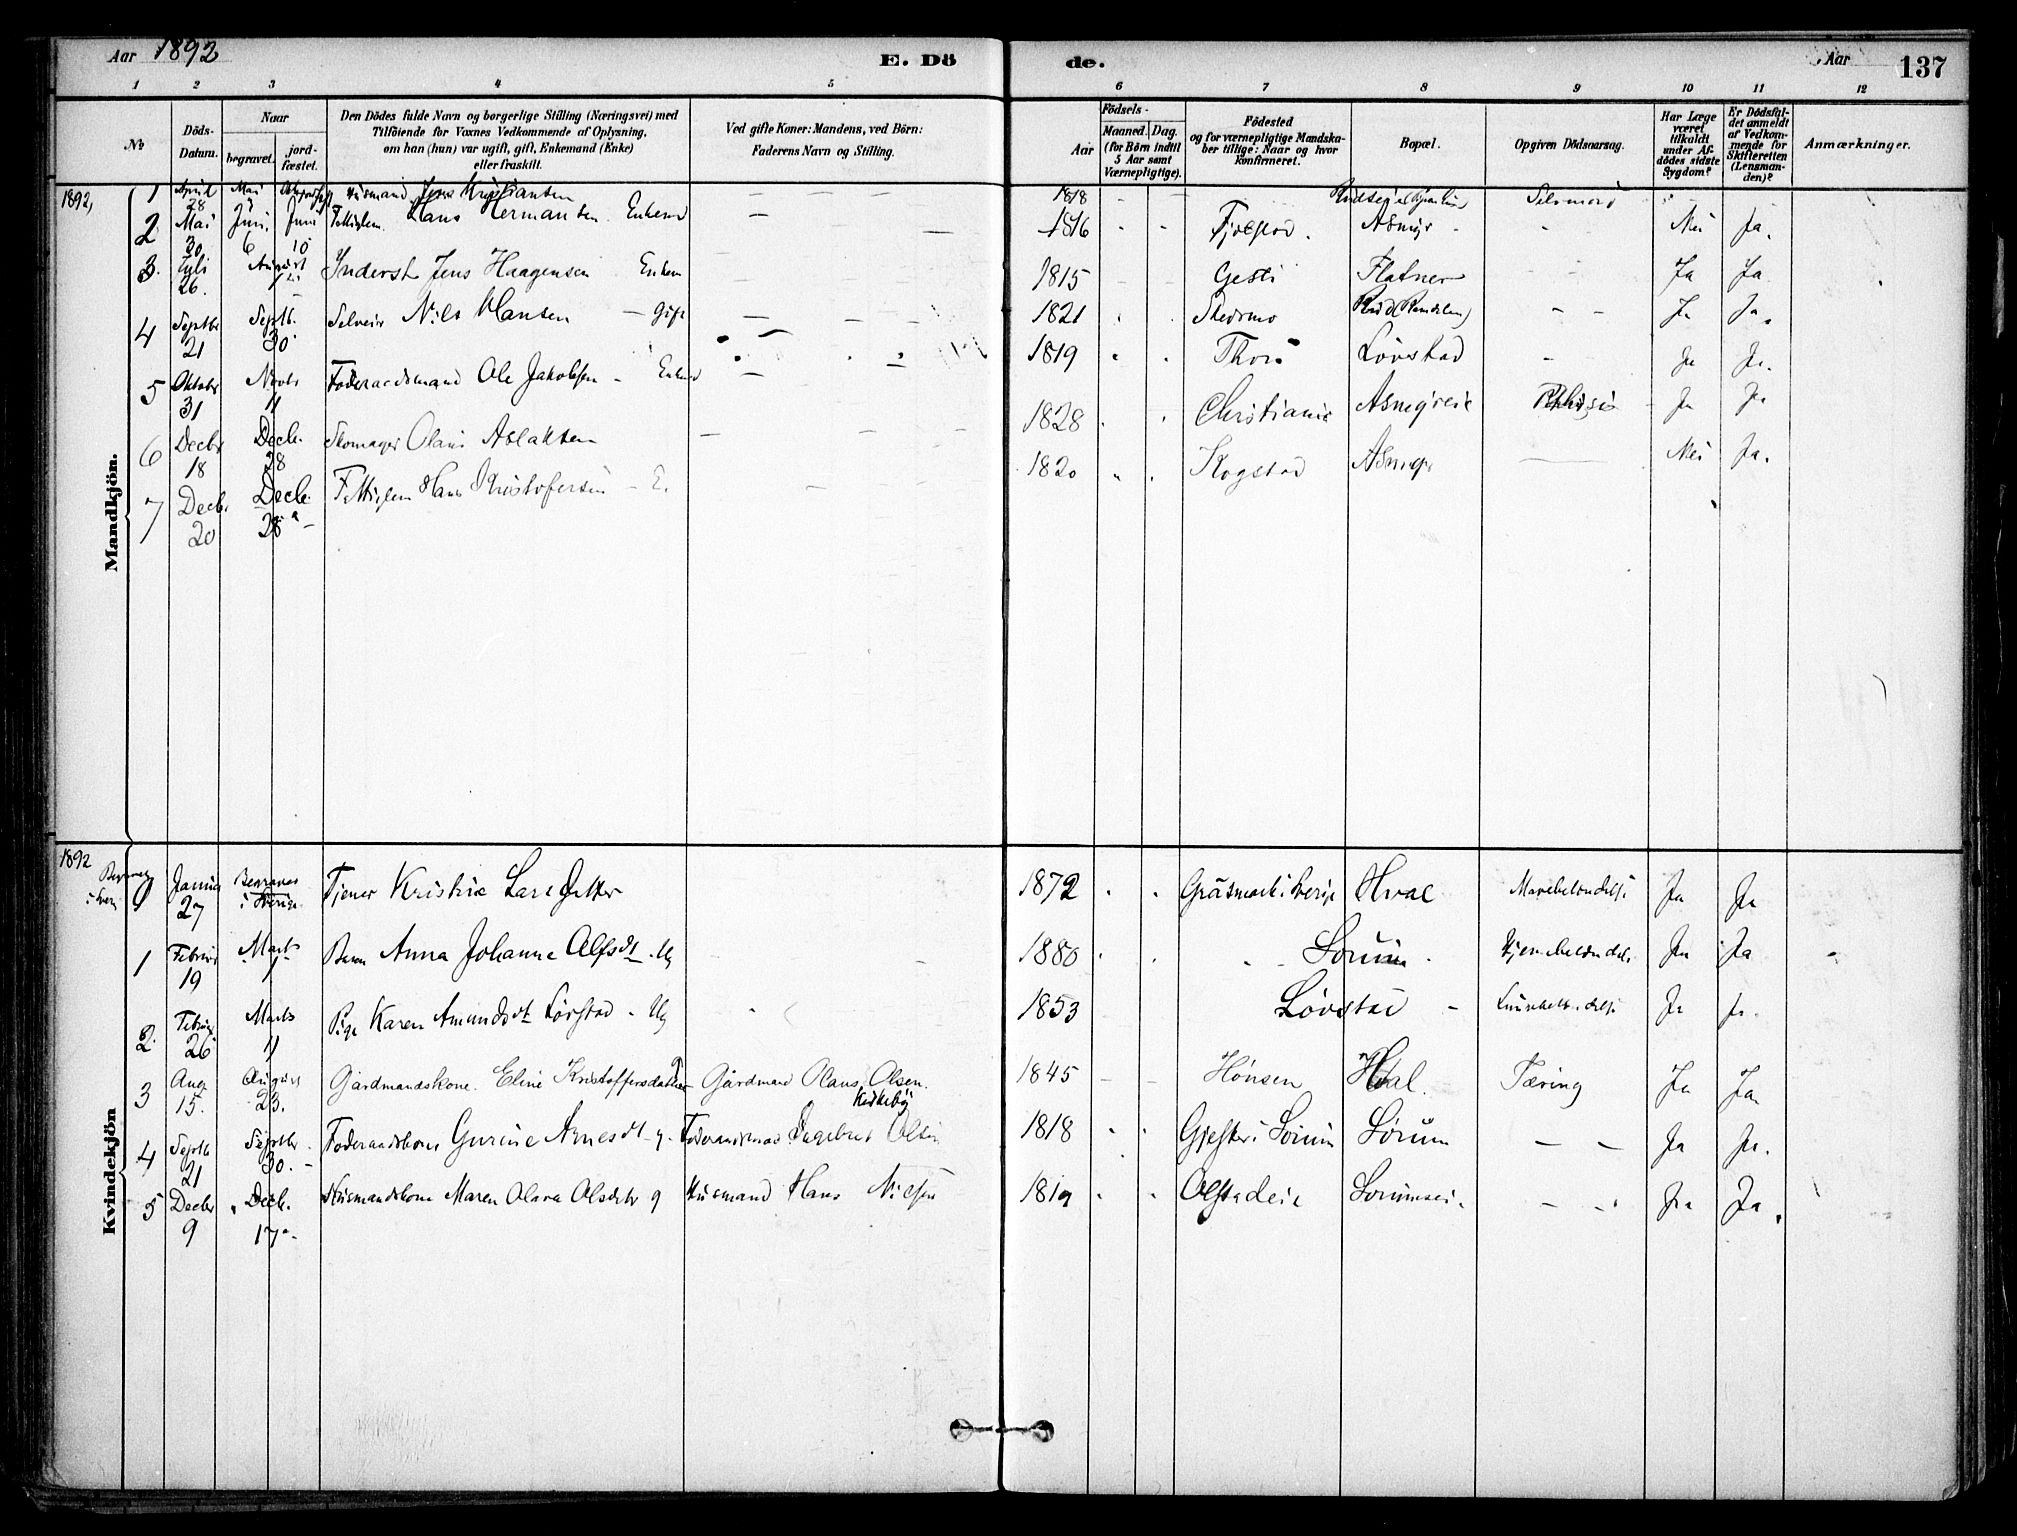 Aar 1892 E. Döde. Aar 137
1 2 3 4 5 6 7 8 9 10 11 12
No
Döds-Datum.
Naar
begravet.
jordfæstet.
Den Dödes fulde Navn og borgerlige Stilling (Næringsvei) med
Tilföiende for Voxnes Vedkommende af Oplysning,
om han (hun) var ugift, gift, Enkemand (Enke)
eller fraskilt.
Ved gifte Koner: Mandens, ved Börn:
Faderens Navn og Stilling.
Födsels-
Aar
Maaned. Dag.
(for Börn indtil
5 Aar samt
Værnepligtige).
Födested
og for værnepligtige Mandska-
ber tillige: Naar og hvor
konfirmeret.
Bopæl.
Opgiven Dödsaarsag.
Har Læge
været
tilkaldt
under Af-
dödes sidste
Sygdom?
Er Dödsfal-
det anmeldt
af Vedkom-
mende for
Skifteretten
(Lensman-
den)?
Anmærkninger.
Mandkjön.
1892,
1 April 28 Mai Husmand Jens Kristiansen — — — 1818 - - Selvmord
2 Mai 30 Juni 6 Juni 10 Hans Hermansen. Enkem — 1816 - - Asmyr - Nei Ja.
3. Juli 26. August Inderst Jens Haagensen Enkem 1815 - - Flatner - - Ja Ja
4 Septbr 21 Septb. 30 Selveier Nils Hansen — Gift — — — 1821 Skedsmo - - Ja Ja.
5 Oktober 31 Novbr 11 Föderaadsmand Ole Jakobsen - Enkem — 1819 Lövstad - Ja Ja.
6 Decbr 18 Decb. 28 Skomager Olaus Aslaksen — - - 1828 Christiania Ja Ja
7 Decbr. 20 Decb. 28 Hans Kristofersen - E. — 1820 Kogstad — Nei Ja.
Kvindekjön
1892
Januar 27 Begravet i Sverige Tjener Kristine 1872 Gräsmark i Sverige Hval Ja Ja
1 Februar 19 Marts 1 Barn Anna Johanne Alfsdt. Ug - 1880 Sorum. Ja Ja
2. Februar 26 Marts 11 Pige Karen Amundsdt Lövstad - Ug 1853 Lövstad - Ja Ja.
3 Aug 15. August 23. Gårdmandskone. Eline Kristoffersdatter Gårdmand Olaus Olsen.
Kirkeby
1845 - - Hönsen Hval Tæring Ja Ja
4 Septb 21 Septbr. 30. Föderaadskone Gurine Arnesdt - g - Föderaadsmand Ingebret Olsen 1818 i Sörum Sörum — — Ja Ja.
5 Decbr 9 Decb. 17 Husmandskone Maren Olava Olsdtr g Husmand Hans 1819 Olstadeie - - Ja Ja.